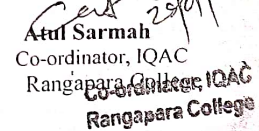 Atul Sarmah
Co-ordinator, IQAC
Rangapara College
Co-ordinator, IQAC
Rangapara College